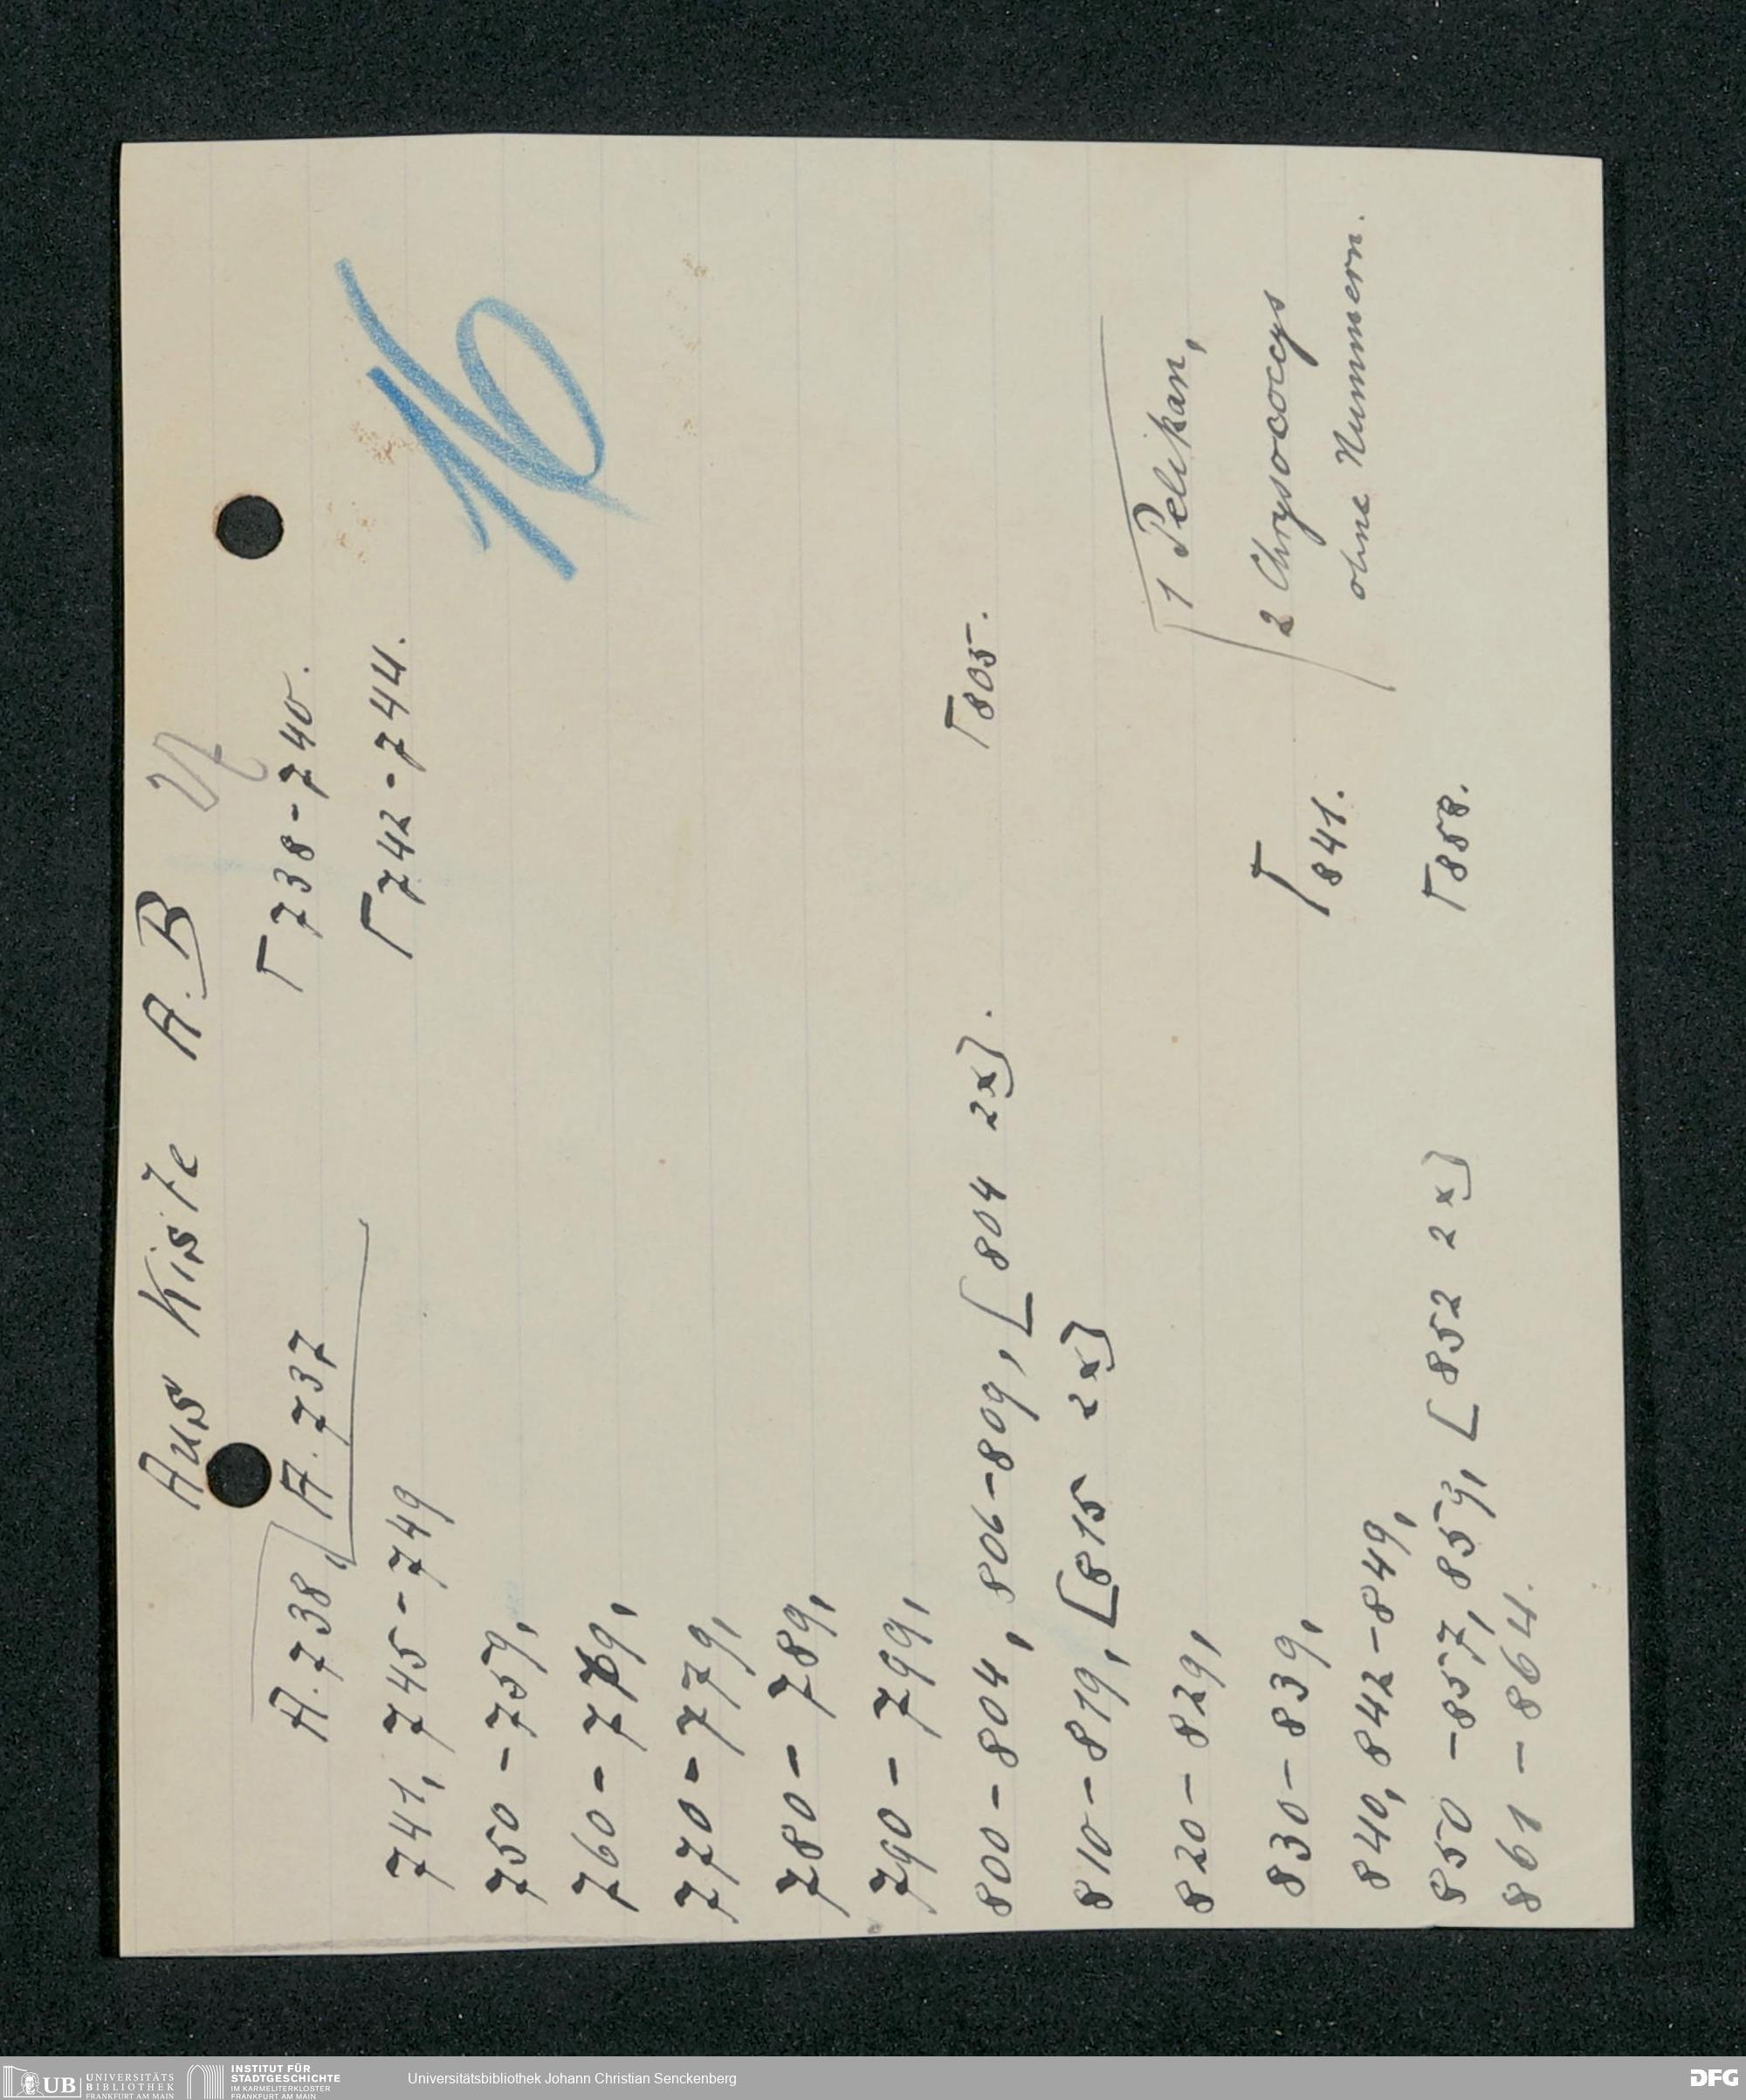 Aus Kiste A.B
A.738, A.737 738-740.
741, 745-749 742-744.
16
750-759,
760-779,
770-779,
780-789,
790-799,
800-804, 806-809, [804 2x]. 805.
810-819, [815 2x]
1 Pelikan,
820-829,
2 Chrysococcys
830-839,
ohne Nummern.
840, 842-849, 841.
850-857, 859, [852 2x] 858.
861-864.
UB UNIVERSITÄTS
BIBLIOTHEK
FRANKFURT AM MAIN
INSTITUT FÜR
STADTGESCHICHTE
IM KARMELITERKLOSTER
FRANKFURT AM MAIN
Universitätsbibliothek Johann Christian Senckenberg
DFG